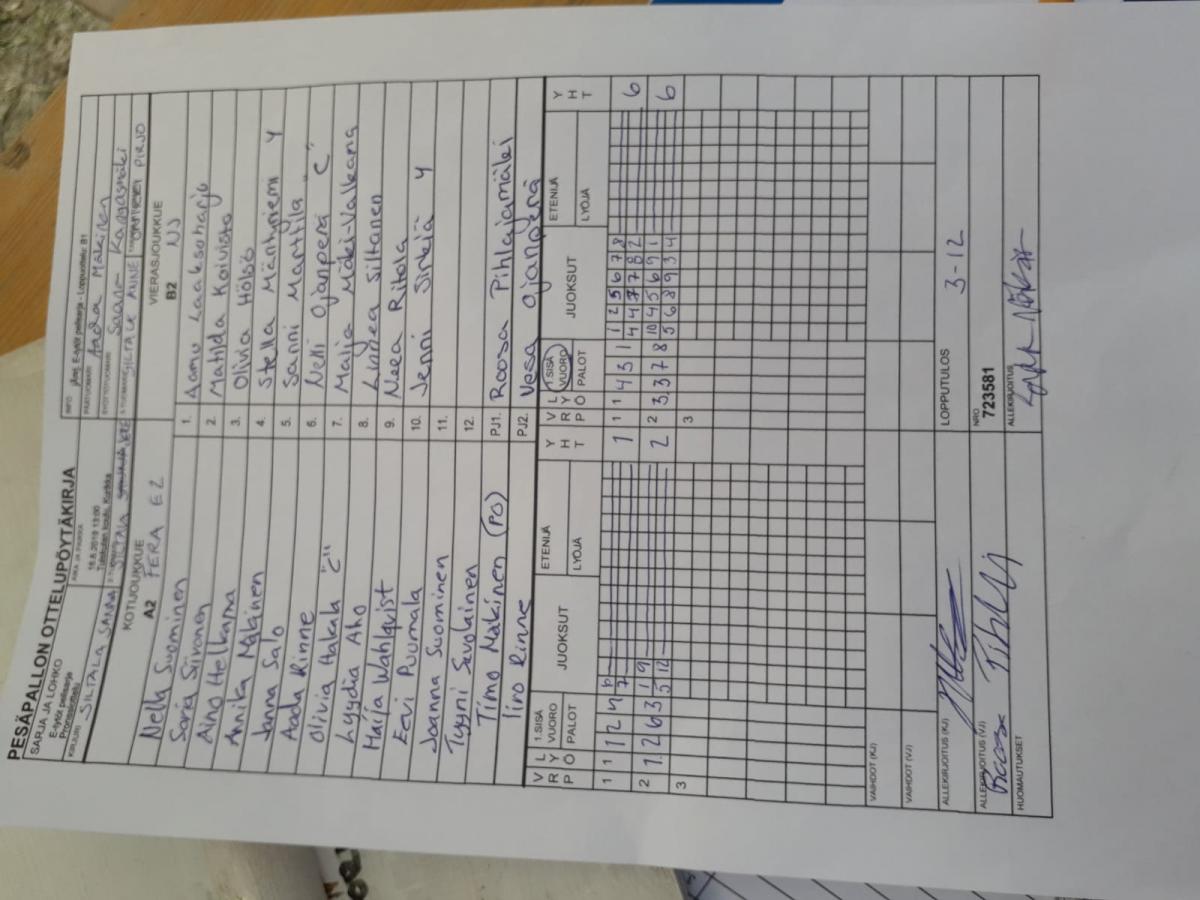 PESÄPALLON OTTELUPÖYTÄKIRJA
SARJA JA LOHKO
E-tytöt pelisarja
Pronssiottelu
AIKA JA PAIKKA
18.8.2019 13:00
Kurikka
INFO
E-tytöt pelisarja - Loppuottelu: B1
PÄÄTUOMARI
Aada Mäkinen
SYÖTTÖTUOMARI
Saana Kangasmäki
KIRJURI
SILTALA SANNA
SILTALA ANNE
PIRJO
KOTIJOUKKUE
A2 PERA E2
VIERASJOUKKUE
B2 NJ
Nella Suominen 1. Aamu Laaksoharju
Saria Siivonen 2. Matilda Koivisto
Aino Helkama 3. Olivia Hölsö
Annika Mäkinen 4. Stella Mäntyniemi Y
Janna Salo 5. Sanni Marttila
Aada Rinne 6. Nelli Ojanperä "C"
Olivia Hakala "C" 7. Malia Mäki-Valkama
Lyydia Aho 8. Linnea Siltanen
Maija Wahlqvist 9. Neea Ritola
Eevi Puumala 10. Jenni Sirkiä Y
Joanna Suominen 11.
Tyyni Savolainen 12.
Timo Mäkinen (PO) PJ1. Roosa Pihlajamäki
Iiro Rinne PJ2. Vesa Ojanperä
V R P L Y Ö 1.SISÄ VUORO PALOT JUOKSUT ETENIJÄ LYÖJÄ Y H T
V R P L Y Ö 1.SISÄ VUORO PALOT JUOKSUT ETENIJÄ LYÖJÄ Y H T
1 1 1 2 4 6 1
7
1 1 4 3 1 1 2 5 6 7 8 6
4 4 7 7 8 2
2 1. 2 6 3 1 9 2
5 12
2 3, 3 7 8 10 4 5 6 9 1 6
5 6 8 9 3 4
3
3
VAIHDOT (KJ)
VAIHDOT (VJ)
ALLEKIRJOITUS (KJ)
LOPPUTULOS
3-12
ALLEKIRJOITUS (VJ)
NRO
723581
HUOMAUTUKSET
ALLEKIRJOITUS